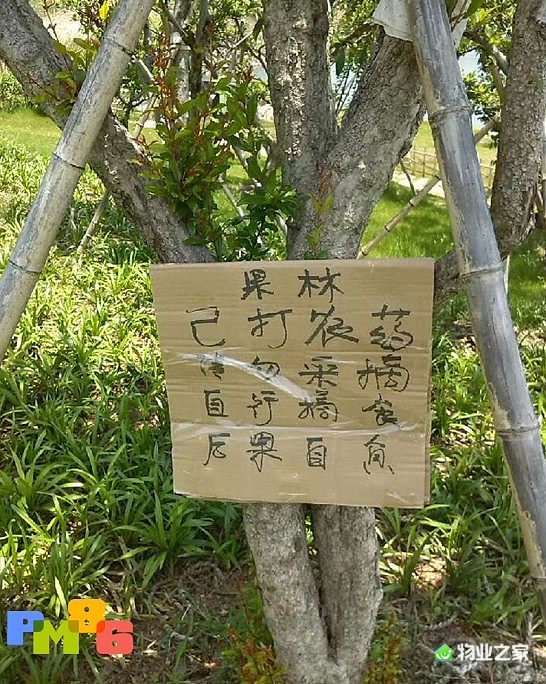 果林
己打农药
请勿采摘
自行摘食
后果自负
PM86
物业之家